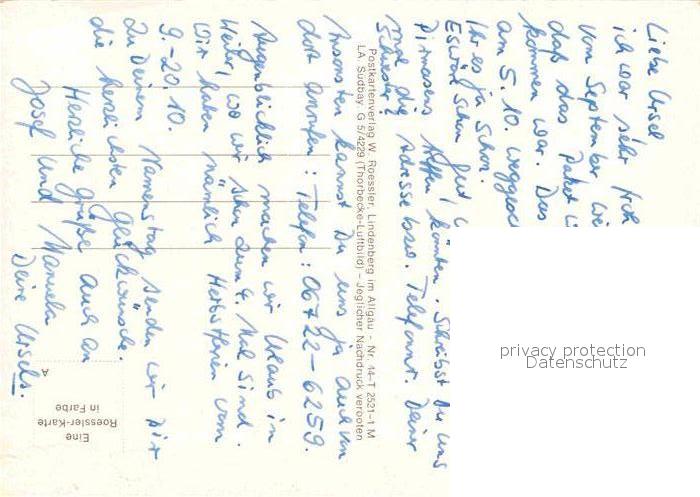 Liebe Ursel
ich war sehr froh
vom September
daß das Paket
kommen war. Du
am 5. 10.
Ihr es ja schon.
Es wäre schon gut,
Pirmasens treffen könnten. Schreibst Du uns
mal die Adresse bzw. Telefonnr. Deiner
Schwester?
Ansonsten kannst Du uns ja auch von
dort anrufen: Telefon: 06722-6259.
Augenblicklich machen wir Urlaub in
Weiler, wo wir schon zum 4. Mal sind.
Wir haben nämlich Herbstferien vom
9.-20.10.
Zu Deinem Namenstag senden wir Dir
die herzlichsten Glückwünsche.
Herzliche Grüße auch an
Josef und Manuela
Deine Ursels.
Postkartenverlag W. Roessler, Lindenberg im Allgäu - Nr. 14-T 2521-1 M
LA. Südbay. G 5/4229 (Thorbecke-Luftbild) - Jeglicher Nachdruck verboten
A
Eine
Roessler-Karte
in Farbe
privacy protection
Datenschutz